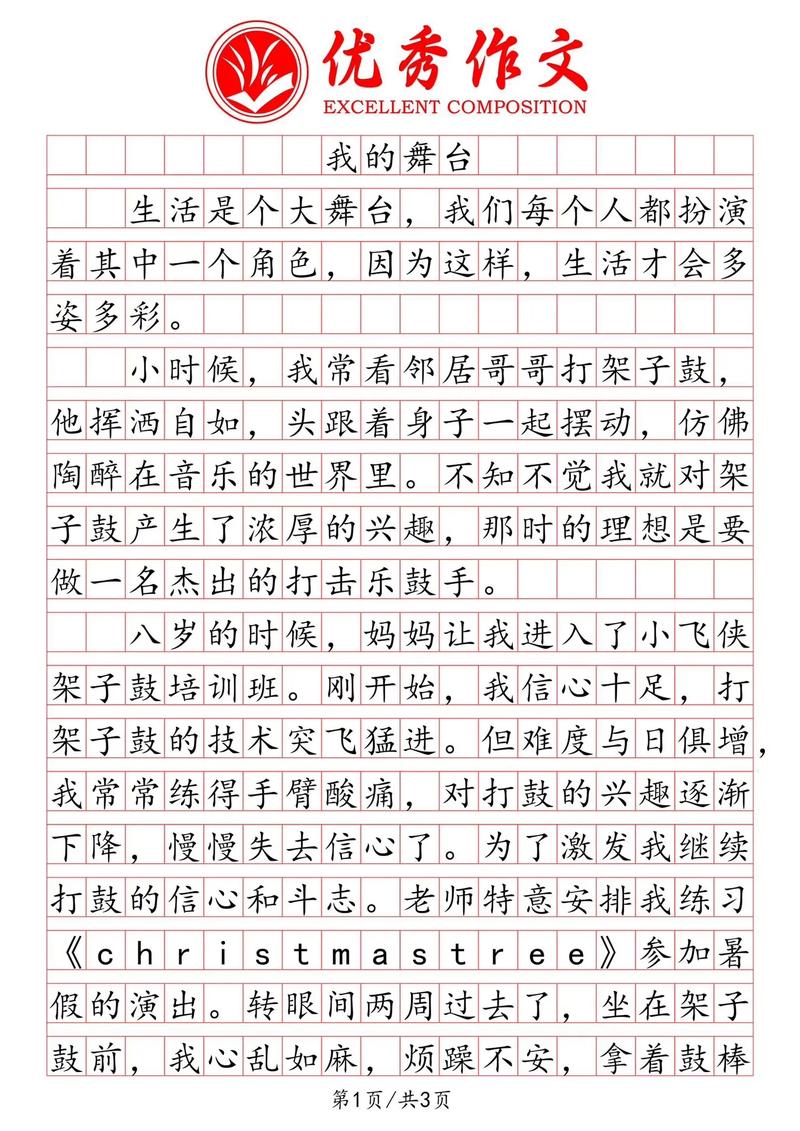 优秀作文
EXCELLENT COMPOSITION
我的舞台
生活是个大舞台，我们每个人都扮演
着其中一个角色，因为这样，生活才会多
姿多彩。
小时候，我常看邻居哥哥打架子鼓，
他挥洒自如，头跟着身子一起摆动，仿佛
陶醉在音乐的世界里。不知不觉我就对架
子鼓产生了浓厚的兴趣，那时的理想是要
做一名杰出的打击乐鼓手。
八岁的时候，妈妈让我进入了小飞侠
架子鼓培训班。刚开始，我信心十足，打
架子鼓的技术突飞猛进。但难度与日俱增，
我常常练得手臂酸痛，对打鼓的兴趣逐渐
下降，慢慢失去信心了。为了激发我继续
打鼓的信心和斗志。老师特意安排我练习
《christmastree》参加暑
假的演出。转眼间两周过去了，坐在架子
鼓前，我心乱如麻，烦躁不安，拿着鼓棒
第1页/共3页